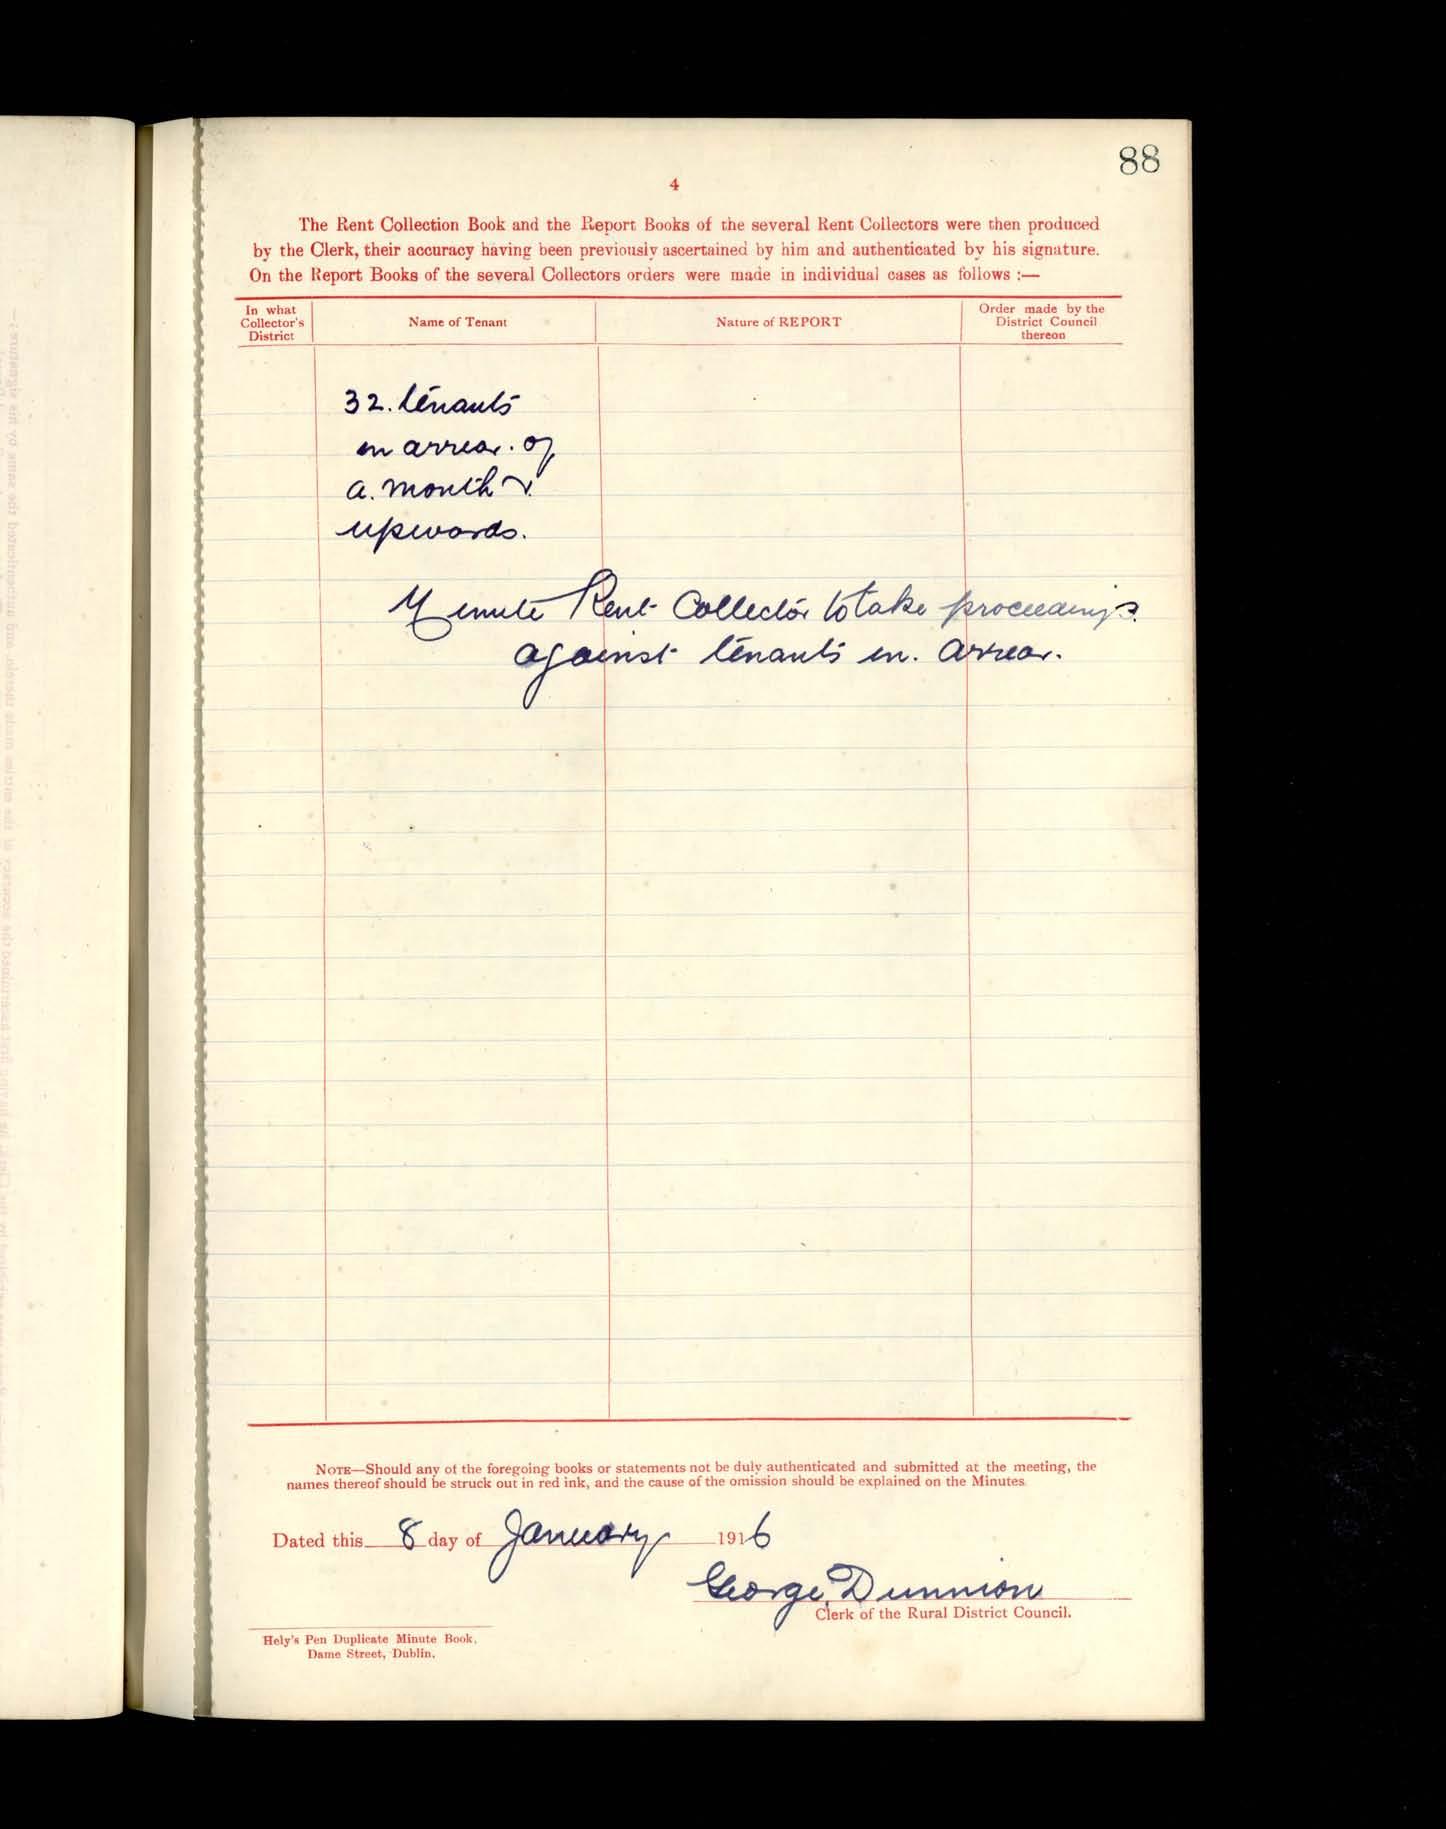 88
4
The Rent Collection Book and the Report Books of the several Rent Collectors were then produced
by the Clerk, their accuracy having been previously ascertained by him and authenticated by his signature.
On the Report Books of the several Collectors orders were made in individual cases as follows :—
In what Collector's District
Name of Tenant
Nature of REPORT
Order made by the District Council thereon
32. tenants
in arrear. of
a. month &
upwards.
Minute Rent Collector to take proceedings
against tenants in. arrear.
NOTE—Should any of the foregoing books or statements not be duly authenticated and submitted at the meeting, the
names thereof should be struck out in red ink, and the cause of the omission should be explained on the Minutes.
Dated this 8 day of January 1916
George Dunnion
Clerk of the Rural District Council.
Hely's Pen Duplicate Minute Book,
Dame Street, Dublin.